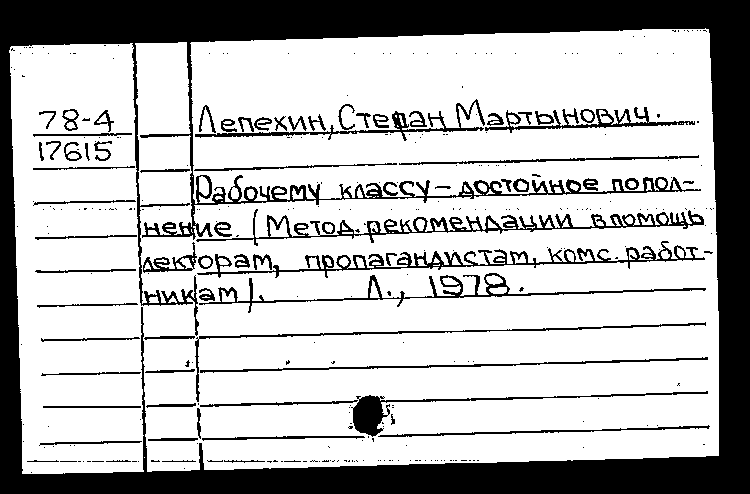 78-4 Лепехин, Степан Мартынович.
17615
Рабочему классу – достойное попол-
нение (Метод. рекомендации в помощь
лекторам, пропагандистам, комс. работ-
никам). Л., 1978.